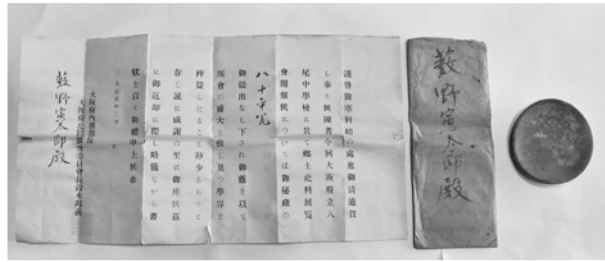 謹啓餘寒料峭の處愈御淸適賀
し奉り候陳者今回大阪府立八
尾中學校に於て鄕土史料展覧
會開催候については御秘蔵の
八十平瓮
御提出なし下され御蔭を以て
同會の盛大を致し且つ學界を
裨益したること尠少ならずと
存じ誠に感謝の至に御座候玆
に御返却に際し略儀ながら書
狀を以て御禮申上候敬
大正五年二月　日
大阪府内務部長
藪野寅太郎殿
藪野寅太郎殿